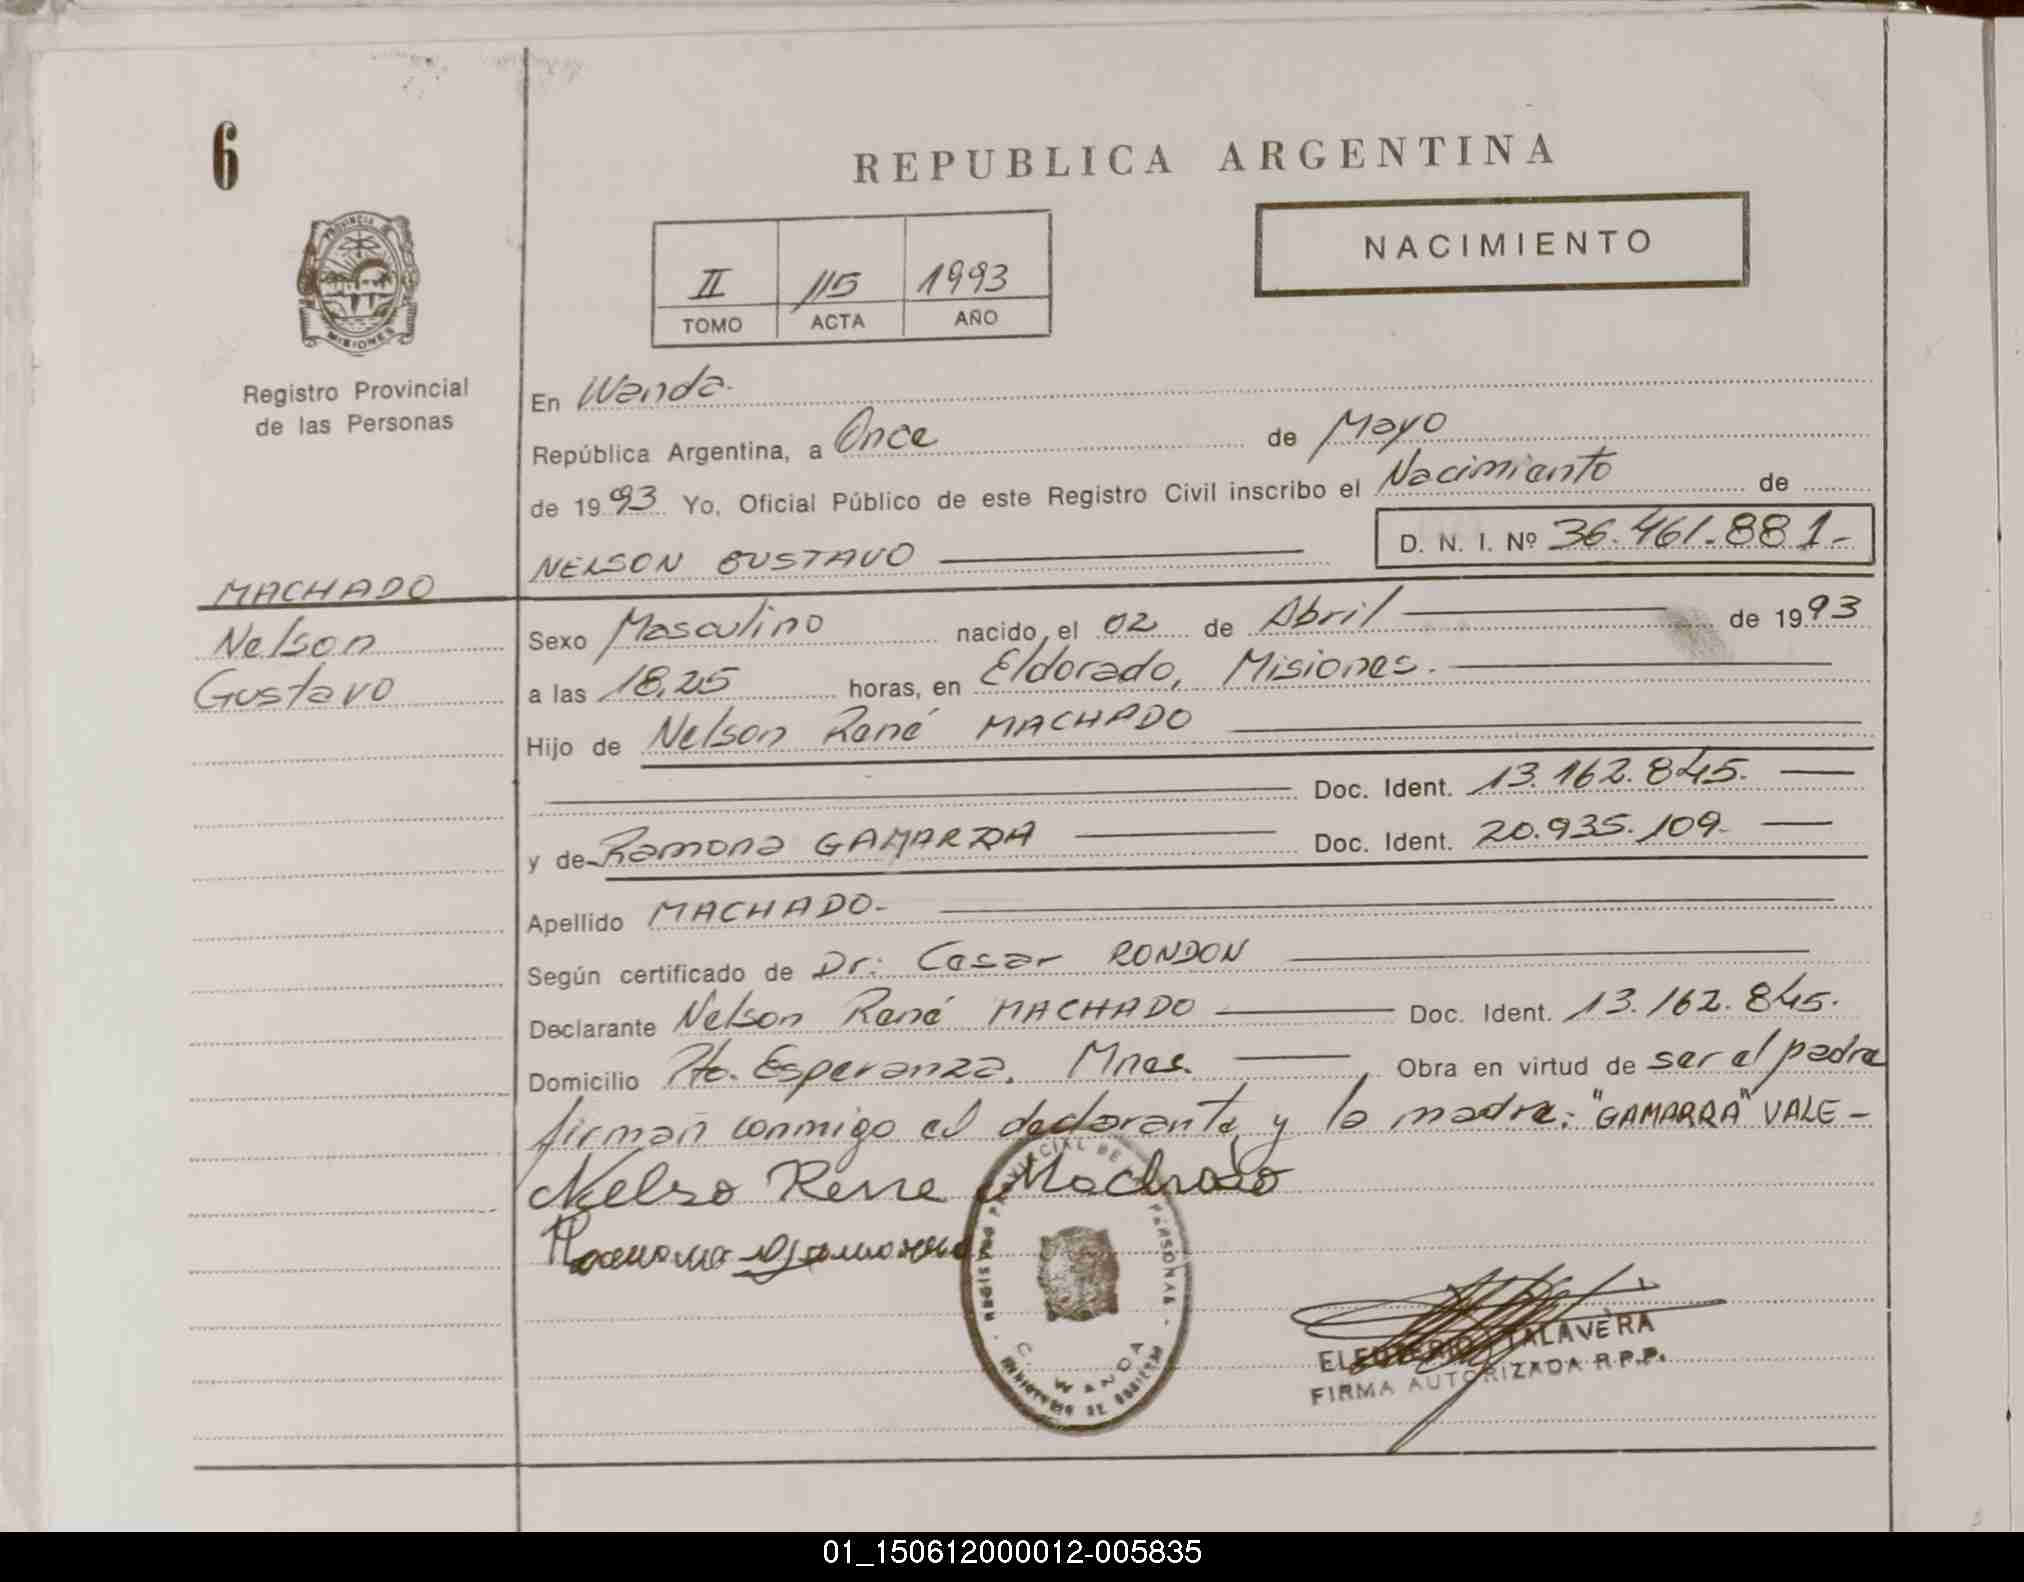 6
REPUBLICA ARGENTINA
NACIMIENTO
II 115 1993
TOMO ACTA AÑO
PROVINCIA DE
MISIONES
Registro Provincial
de las Personas
En Wanda.
República Argentina, a Once de Mayo
de 1993 Yo, Oficial Público de este Registro Civil inscribo el Nacimiento de
NELSON GUSTAVO D. N. I. Nº 36.461.881.-
MACHADO
Nelson
Gustavo
Sexo Masculino nacido el 02 de Abril de 1993
a las 18,25 horas, en Eldorado, Misiones.
Hijo de Nelson René MACHADO
Doc. Ident. 13.162.845.
y de Ramona Doc. Ident. 20.935.109.
Apellido MACHADO-
Según certificado de Dr. Cesar RONDON
Declarante Nelson René MACHADO Doc. Ident. 13.162.845.
Domicilio Pto. Esperanza. Mnes. Obra en virtud de ser el padre
firman conmigo el declarante y la madre: "GAMARRA" VALE-
Nelso Rene Machado
REGISTRO PROVINCIAL DE PERSONAS
WANDA
ELEUTERIO TALAVERA
FIRMA AUTORIZADA R.P.P.
01_150612000012-005835